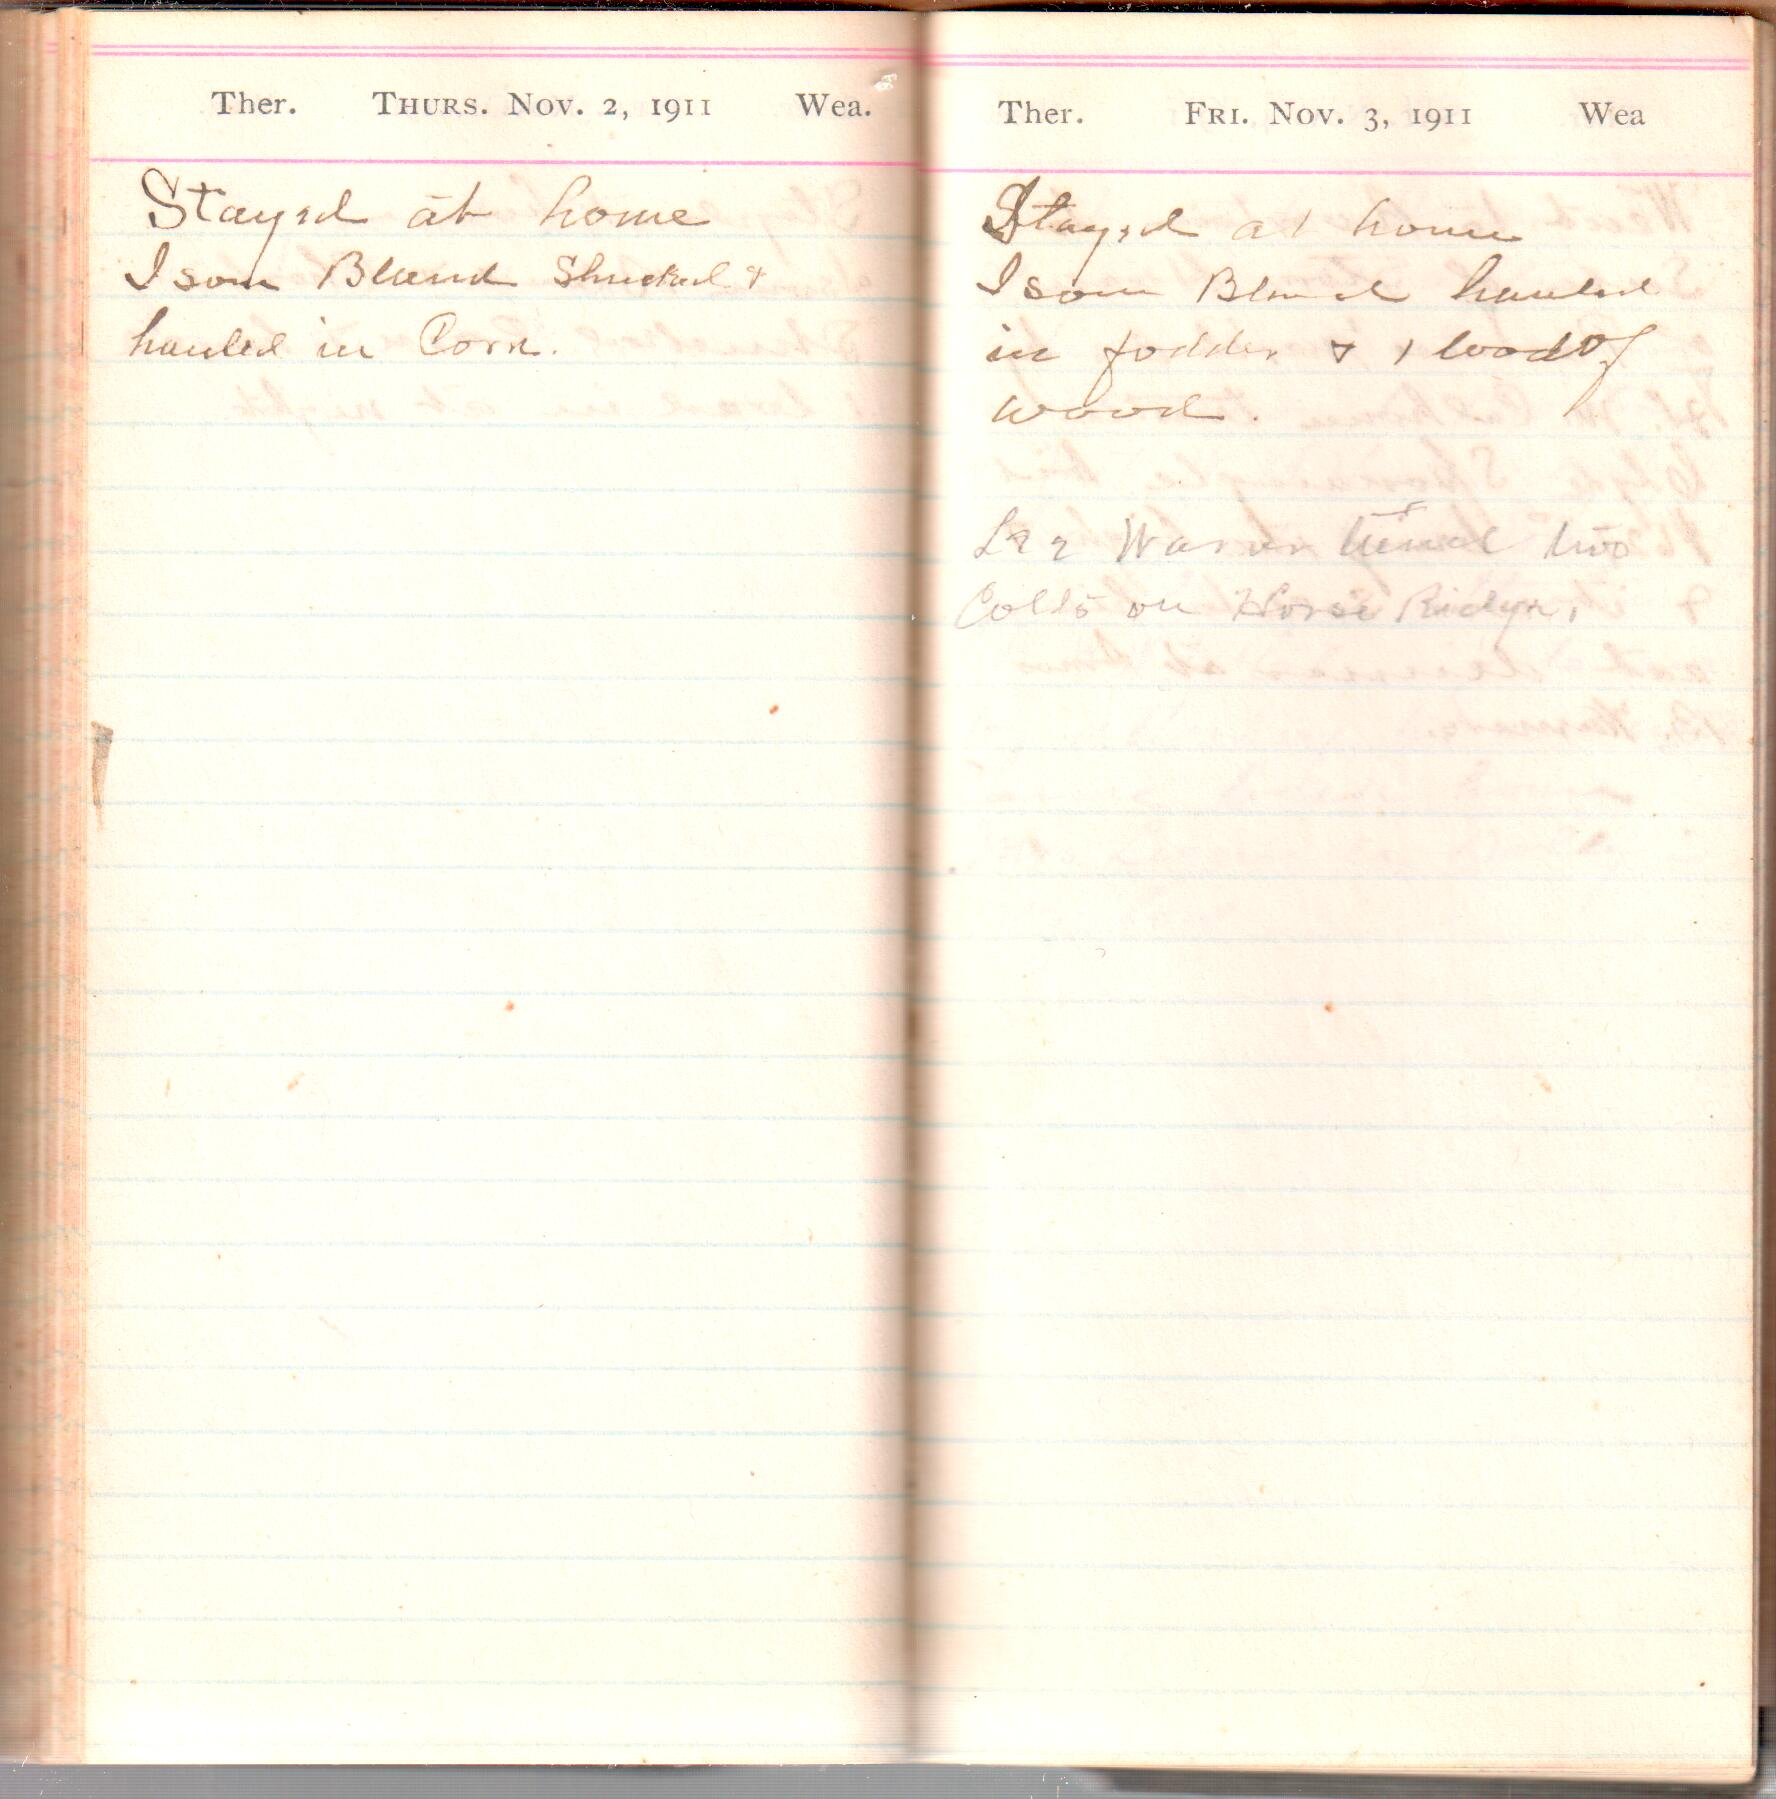 Ther. THURS. NOV. 2, 1911 Wea.
Stayed at home
Isom Bland Shucked &
hauled in Corn.
Ther. FRI. NOV. 3, 1911 Wea
Stayed at home
Isom Bland hauled
in fodder & 1 load of
wood.
Lee Warner two
Colts on Horse Ridge.